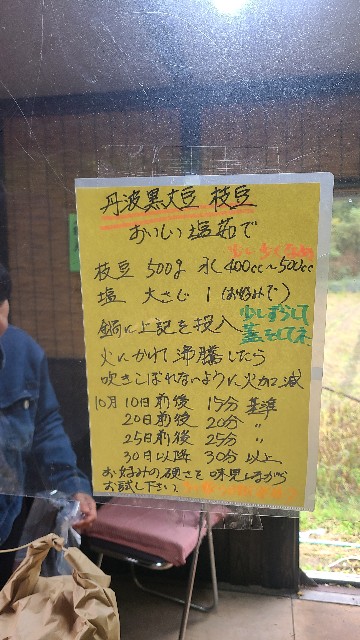 丹波黒大豆 枝豆
おいしい塩茹で
枝豆 500g 水400cc〜500cc
塩 大さじ 1 (お好みで)
鍋に上記を投入
蓋をしてネ
火にかけて沸騰したら
吹きこぼれないように火加減
10月10日前後 15分 基準
20日前後 20分 〃
25日前後 25分 〃
30日以降 30分以上
お好みの硬さを味見しながら
お試し下さい